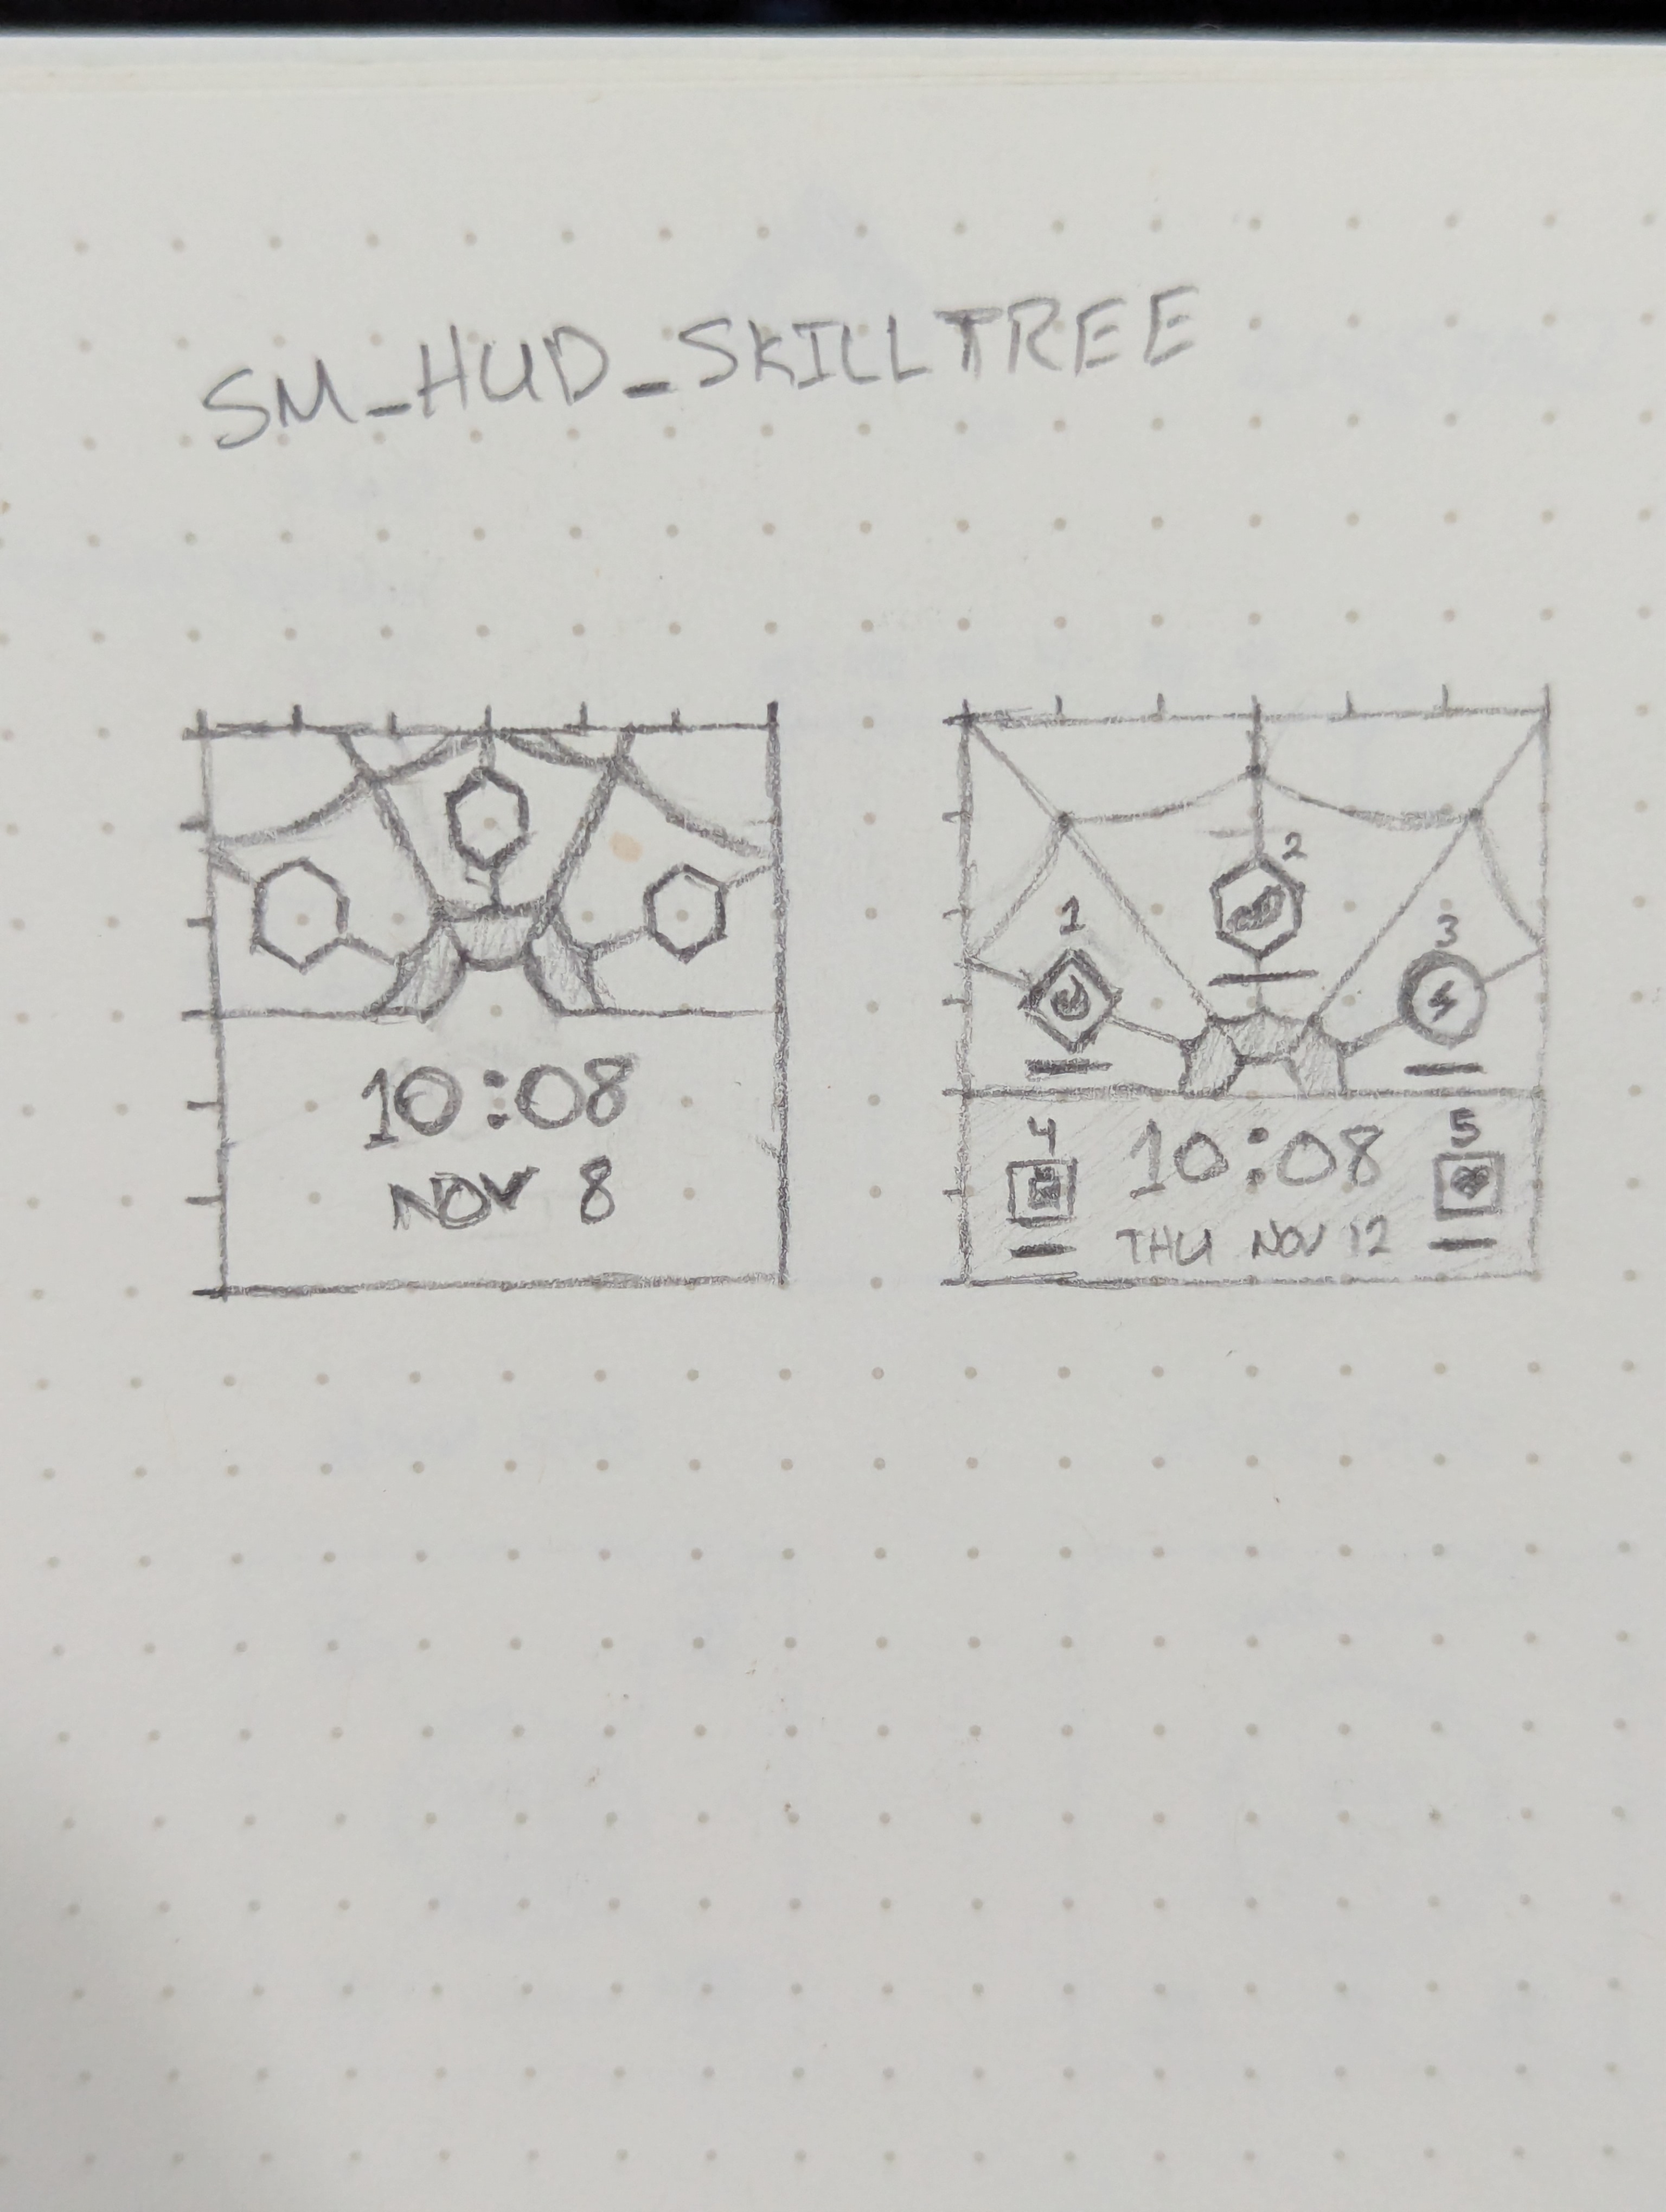 SM_HUD_SKILLTREE
10:08
NOV 8
2
1
3
4
10:08
5
THU NOV 12